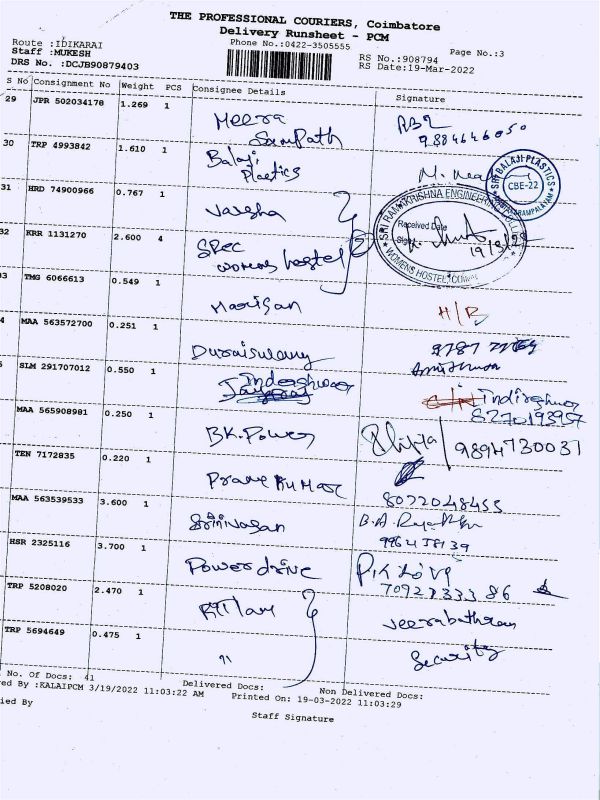 THE PROFESSIONAL COURIERS, Coimbatore
Delivery Runsheet - PCM
Phone No.:0422-3505555
Page No.:3
Route :IDIKARAI
Staff :MUKESH
DRS No. :DCJB90879403
RS No.:908794
RS Date:19-Mar-2022
S No Consignment No Weight PCS Consignee Details Signature
29 JPR 502034178 1.269 1 Meera Sampath
9884646050
30 TRP 4993842 1.610 1 Balaji Plastics
SRI BALAJI PLASTICS CBE-22
31 HRD 74900966 0.767 1 Varsha
SRI RAMAKRISHNA ENGINEERING COLLEGE
Received Date
WOMENS HOSTEL,
19/3/22
32 KRR 1131270 2.600 4 SREC womens hostel
33 TMG 6066613 0.549 1 Harisan H/R
4 MAA 563572700 0.251 1 Duraiswamy
5 SLM 291707012 0.550 1 Indeeshwar
8270193957
MAA 565908981 0.250 1 BK.Power 9894730031
TEN 7172835 0.220 1 Pravekumar
8072048455
MAA 563539533 3.600 1 Srinivasan
HSR 2325116 3.700 1 Powerdrive
TRP 5208020 2.470 1 Veerabathran
TRP 5694649 0.475 1 " Security
No. Of Docs: 41 Delivered Docs: Non Delivered Docs:
ed By :KALAIPCM 3/19/2022 11:03:22 AM Printed On: 19-03-2022 11:03:29
ied By
Staff Signature